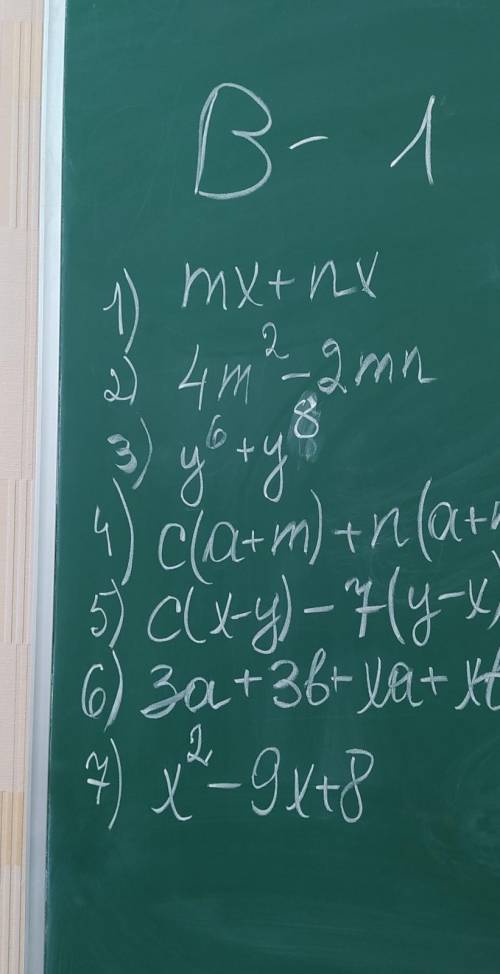 В - 1
1) mx + nx
2) 4m² - 2mn
3) y⁶ + y⁸
4) c(a+m) + n(a+
5) c(x-y) - 7(y-x)
6) 3a + 3b + xa + xb
7) x² - 9x + 8